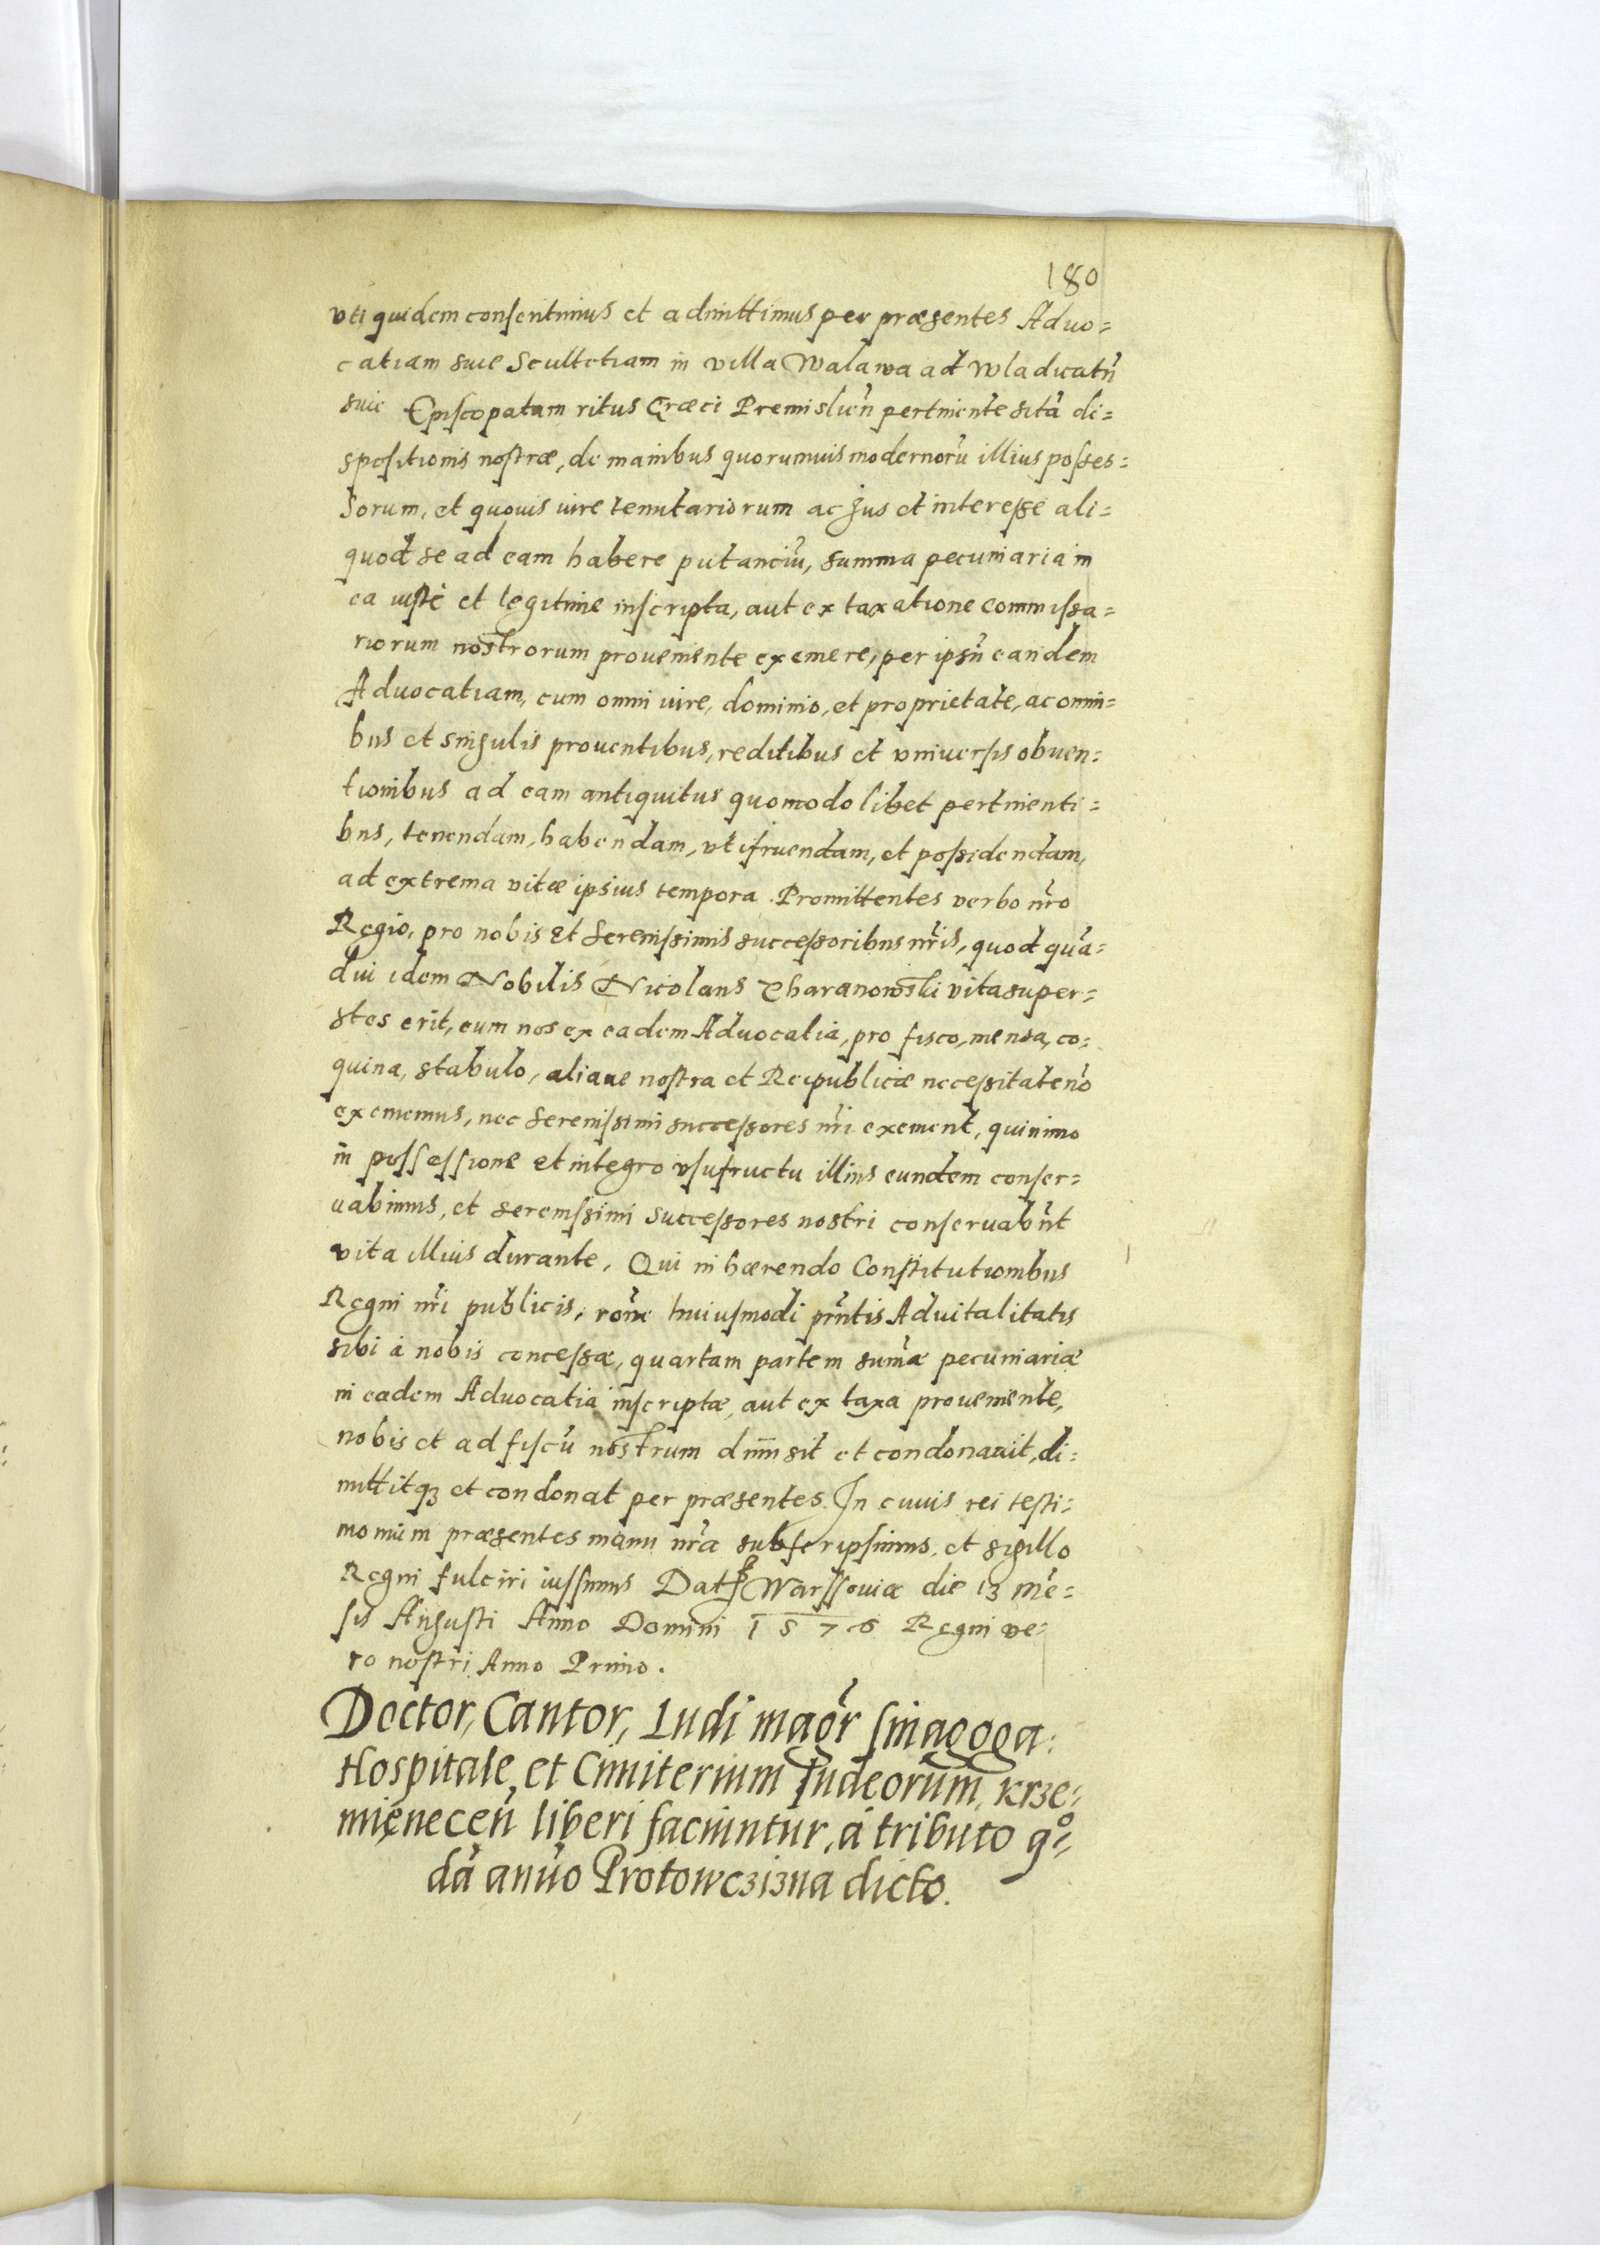 180
vti quidem consentimus et admittimus per præsentes Aduo=
catiam siue Scultetiam in villa Walawa ad Wladicatũ
siue Episcopatum ritus Græci Premislieñ pertinente sitã di=
spositionis nostræ, de manibus quorumuis modernorũ illius posses=
sorum, et quouis iure tenutariorum ac Jus et interesse ali=
quod se ad eam habere putanciũ, summa pecuniaria in
ea iustè et legitime inscripta, aut ex taxatione commissa=
riorum nostrorum proueniente exemere, per ipsũ eandem
Aduocatiam, cum omni iure, dominio, et proprietate, ac omni=
bus et singulis prouentibus, reditibus et vniuersis obuen=
tionibus ad eam antiquitus quomodolibet pertinenti=
bus, tenendam, habendam, vtifruendam, et possidendam,
ad extrema vitæ ipsius tempora. Promittentes verbo nr̃o
Regio, pro nobis et Serenissimis successoribus nr̃is, quod quã=
diu idem Nobilis Nicolaus Charanowski vita super=
stes erit, eum nos ex eadem Aduocatia, pro fisco, mensa, co=
quina, stabulo, aliaue nostra et Reipublicæ necessitate nõ
exememus, nec Serenissimi successores nr̃i exement, quinimo
in possessione et integro vsufructu illius eundem conser=
uabimus, et serenissimi Successores nostri conseruabũt
vita illius durante. Qui inhærendo Constitutionibus
Regni nr̃i publicis, rõne huiusmodi pr̃ntis Aduitalitatis
sibi à nobis concessæ, quartam partem sum̃æ pecuniariæ
in eadem Aduocatia inscriptæ, aut ex taxa proueniente,
nobis et ad fiscũ nostrum dimisit et condonauit, di=
mittitqȝ et condonat per præsentes. In cuius rei testi=
monium præsentes manu nr̃a subscripsimus, et sigillo
Regni fulciri iussimus Dat Warssouiæ die 13 mẽ=
sis Augusti Anno Domini 1576 Regni ve=
ro nostri Anno Primo.
Doctor, Cantor, Ludi magr̃ Sinagoga,
Hospitale, et Cimiterium Judeorum, Krze=
mienecen̄ liberi faciuntur, à tributo qo=
dã anũo Protowczizna dicto.